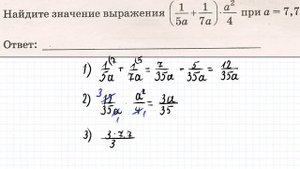 Найдите значение выражения (1/5a + 1/7a) · a²/4 при a = 7,7
Ответ:
1) 1\7/5a + 1\5/7a = 7/35a - 5/35a = 12/35a
2) 3 12/35a 1 · a²/4 1 = 3a/35
3) 3·7,7/3